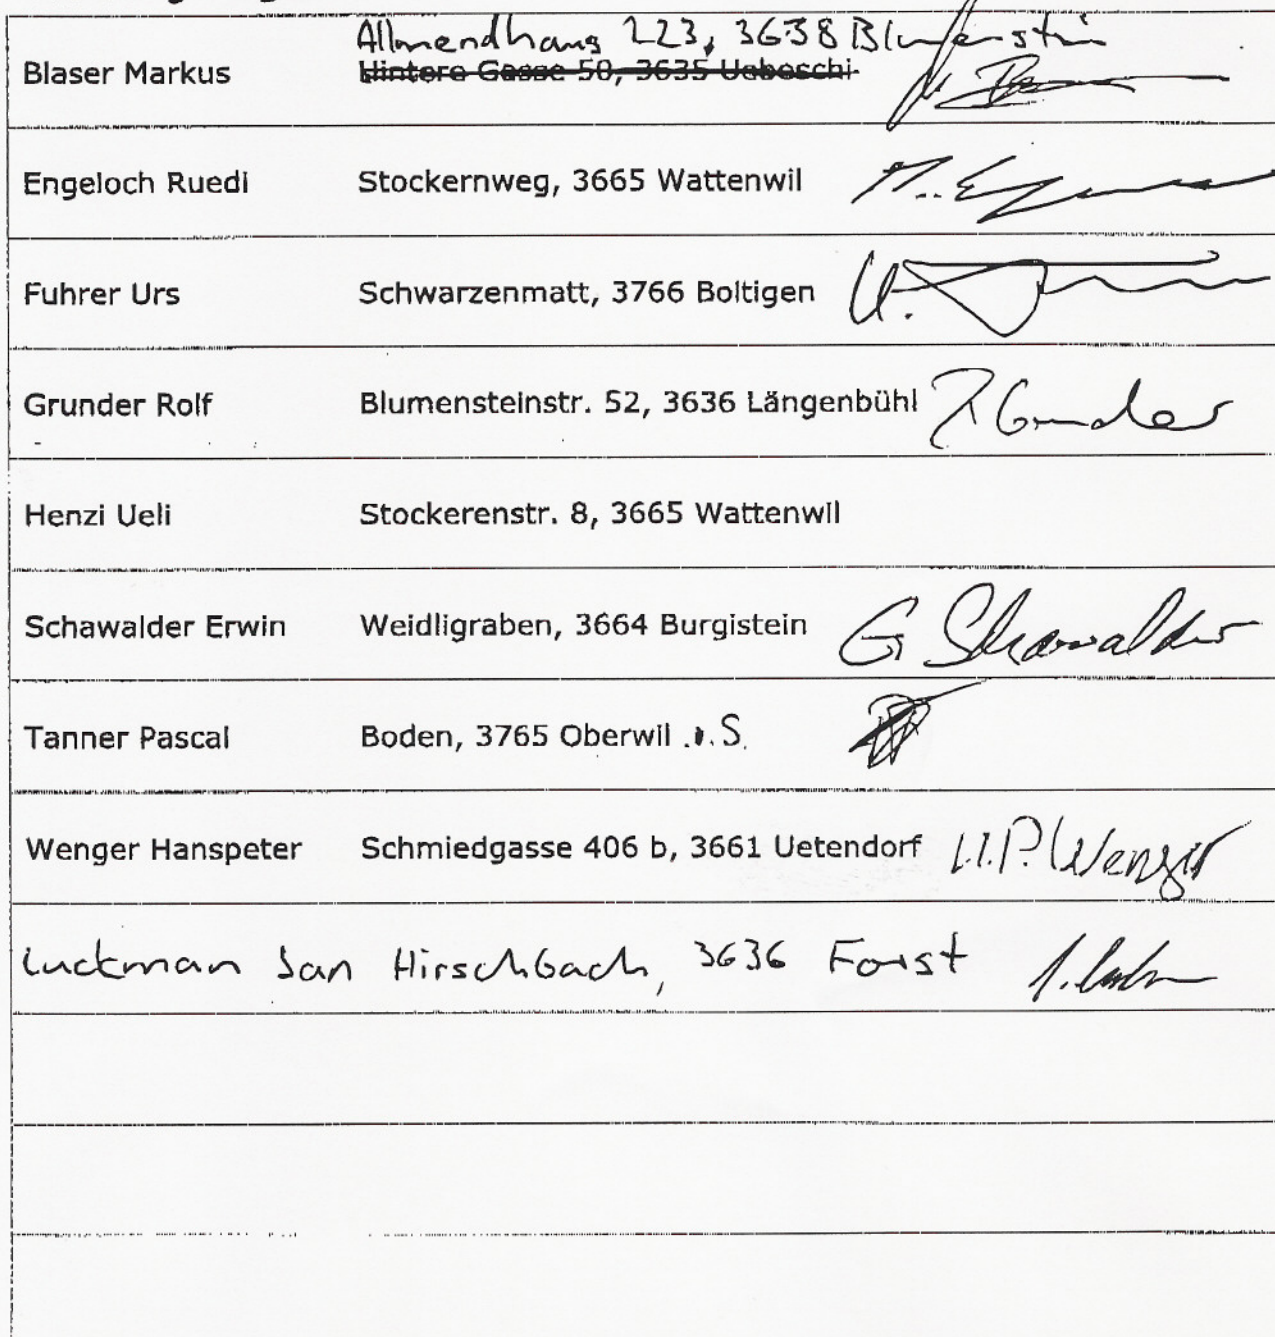 Allmendhaus 223, 3638 Blumenstein
Blaser Markus Hintere Gasse 50, 3635 Uebeschi
Engeloch Ruedi Stockernweg, 3665 Wattenwil
Fuhrer Urs Schwarzenmatt, 3766 Boltigen U.
Grunder Rolf Blumensteinstr. 52, 3636 Längenbühl R Grunder
Henzi Ueli Stockerenstr. 8, 3665 Wattenwil
Schawalder Erwin Weidligraben, 3664 Burgistein E Schawalder
Tanner Pascal Boden, 3765 Oberwil i.S.
Wenger Hanspeter Schmiedgasse 406 b, 3661 Uetendorf H.P. Wenger
Luckman San Hirschbach, 3636 Forst